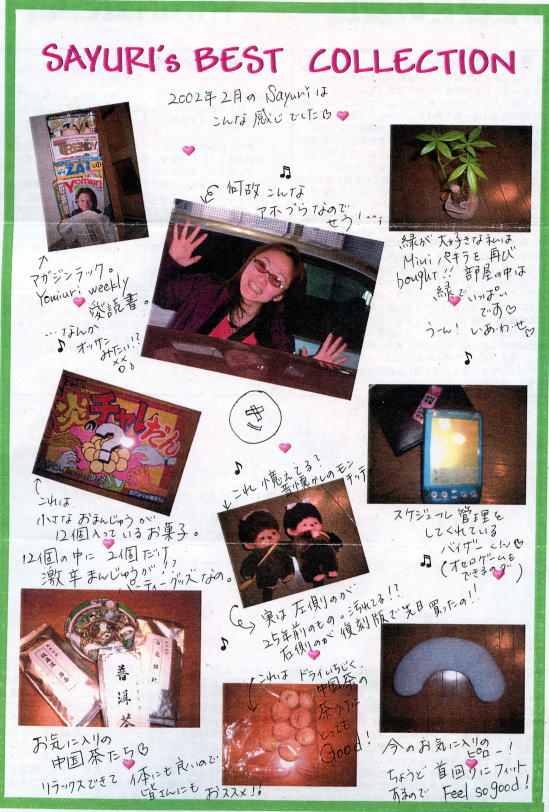 SAYURI's BEST COLLECTION
2002年2月の Sayuri は
こんな感じでした
何故こんな
アホづらなので
せう!
マガジンラック。
Yomiuri weekly
愛読書。
…なんか
オッサン
みたい!?
緑が大好きな私は
Mini パキラを再び
bought!! 部屋の中は
緑でいっぱい
です
うーん!しあわせ
チャレだん
これは
小さなおまんじゅうが
12個入っているお菓子。
12個の中に2個だけ
激辛まんじゅうが!?
パーティーグッズなの。
これ憶えてる?
昔懐かしのモン
チッチ
実は左側のが
25年前のもの。汚れてる!?
右側のが復刻版で先日買ったの!!
スケジュール管理を
してくれている
バイザーくん
(オセロゲームも
できるのダ)
普洱茶
お気に入りの
中国茶たち
リラックスできて体にも良いので
皆さんにもおススメ!!
これはドライいちじく。
中国茶の
茶うけに
とっても
Good!
今のお気に入りの
ピロー!
ちょうど首回りにフィット
するので Feel so good!